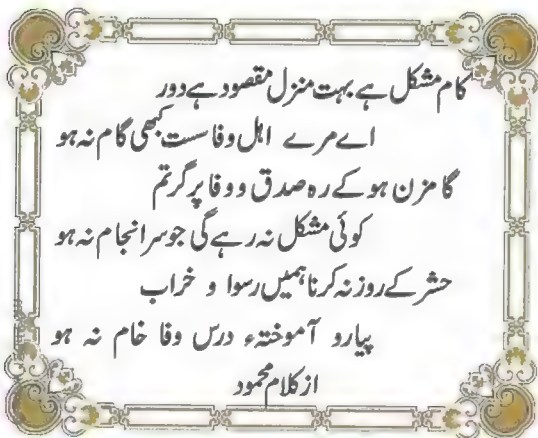 کام مشکل ہے بہت منزل مقصود ہے دور
اے مرے اہل وفا سست کبھی گام نہ ہو
گامزن ہو کے رہ صدق و وفا پر گر تم
کوئی مشکل نہ رہے گی جو سرانجام نہ ہو
حشر کے روز نہ کرنا ہمیں رسوا و خراب
پیارو آموختہء درس وفا خام نہ ہو
از کلام محمود